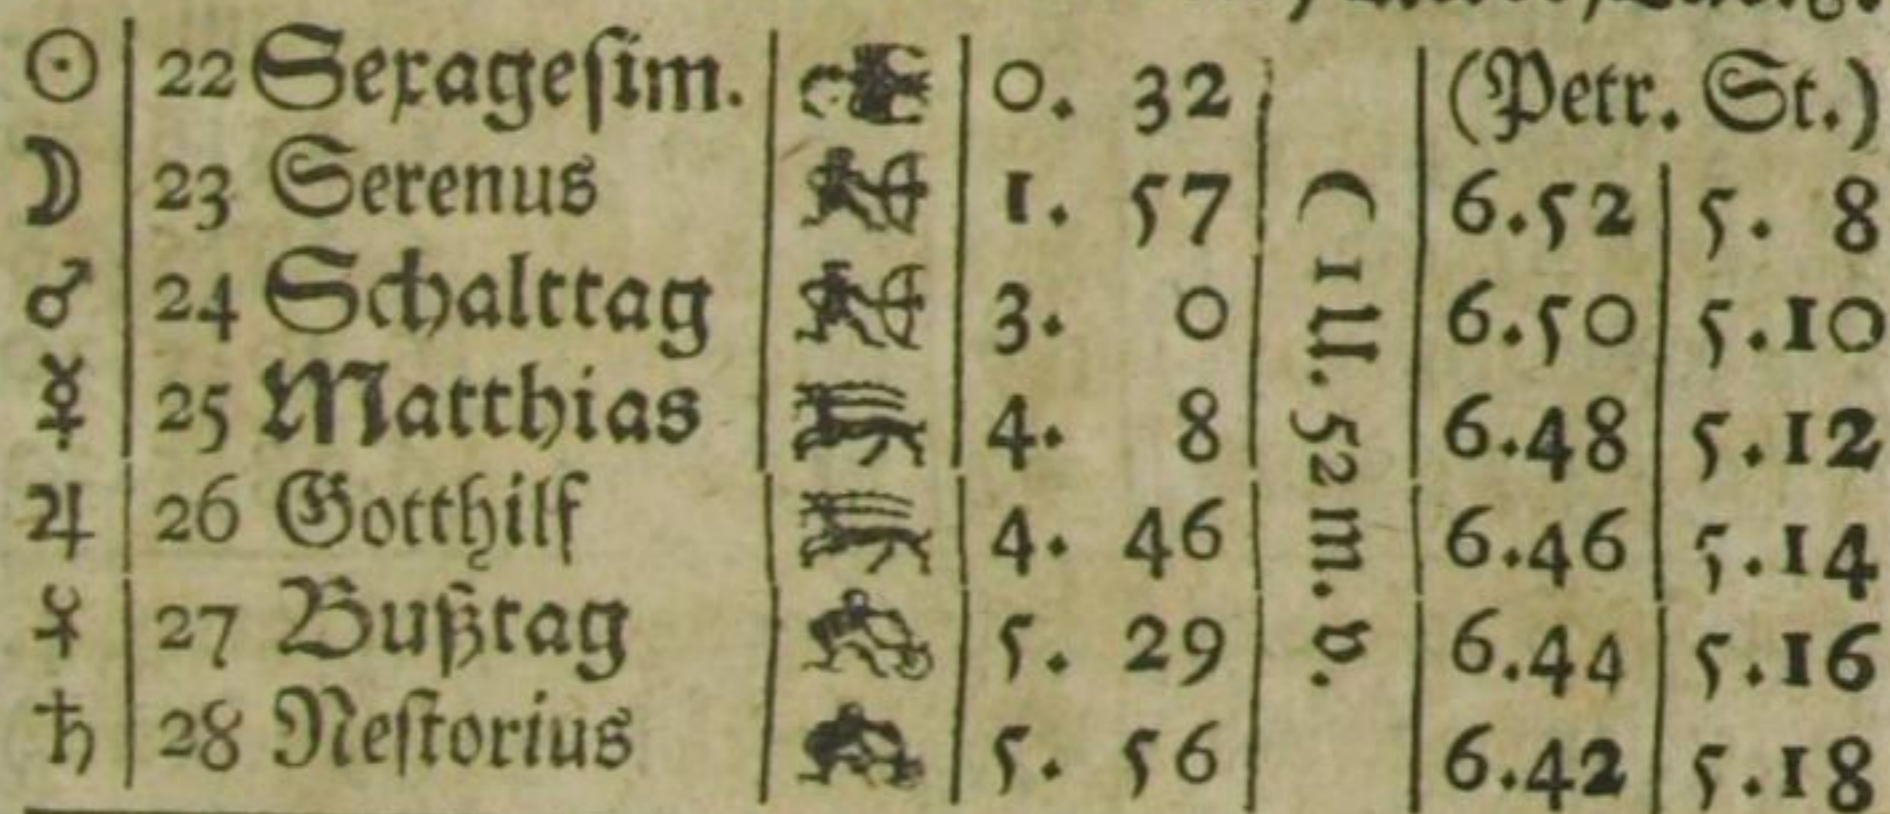 ☉ 22 Sexageſim. 0. 32 (Petr. St.)
☽ 23 Serenus 1. 57 6.52 5. 8
♂ 24 Schalttag 3. 0 6.50 5.10
☿ 25 Matthias 4. 8 6.48 5.12
♃ 26 Gotthilf 4. 46 6.46 5.14
♀ 27 Bußtag 5. 29 6.44 5.16
♄ 28 Neſtorius 5. 56 6.42 5.18
☾ 1 U. 52 m. v.